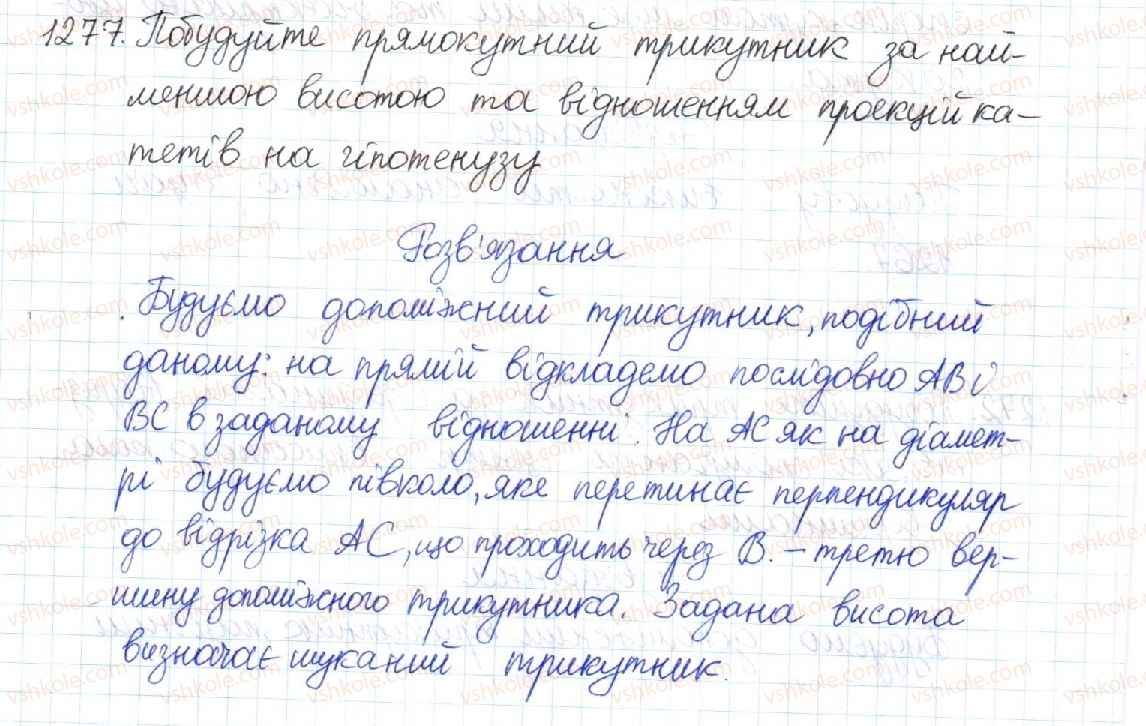 1277. Побудуйте прямокутний трикутник за най-
меншою висотою та відношенням проекцій ка-
тетів на гіпотенузу
Розв'язання
Будуємо допоміжний трикутник, подібний
даному: на прямій відкладемо послідовно AB і
BC в заданому відношенні. На AC як на діамет-
рі будуємо півколо, яке перетинає перпендикуляр
до відрізка AC, що проходить через B. – третю вер-
шину допоміжного трикутника. Задана висота
визначає шуканий трикутник.